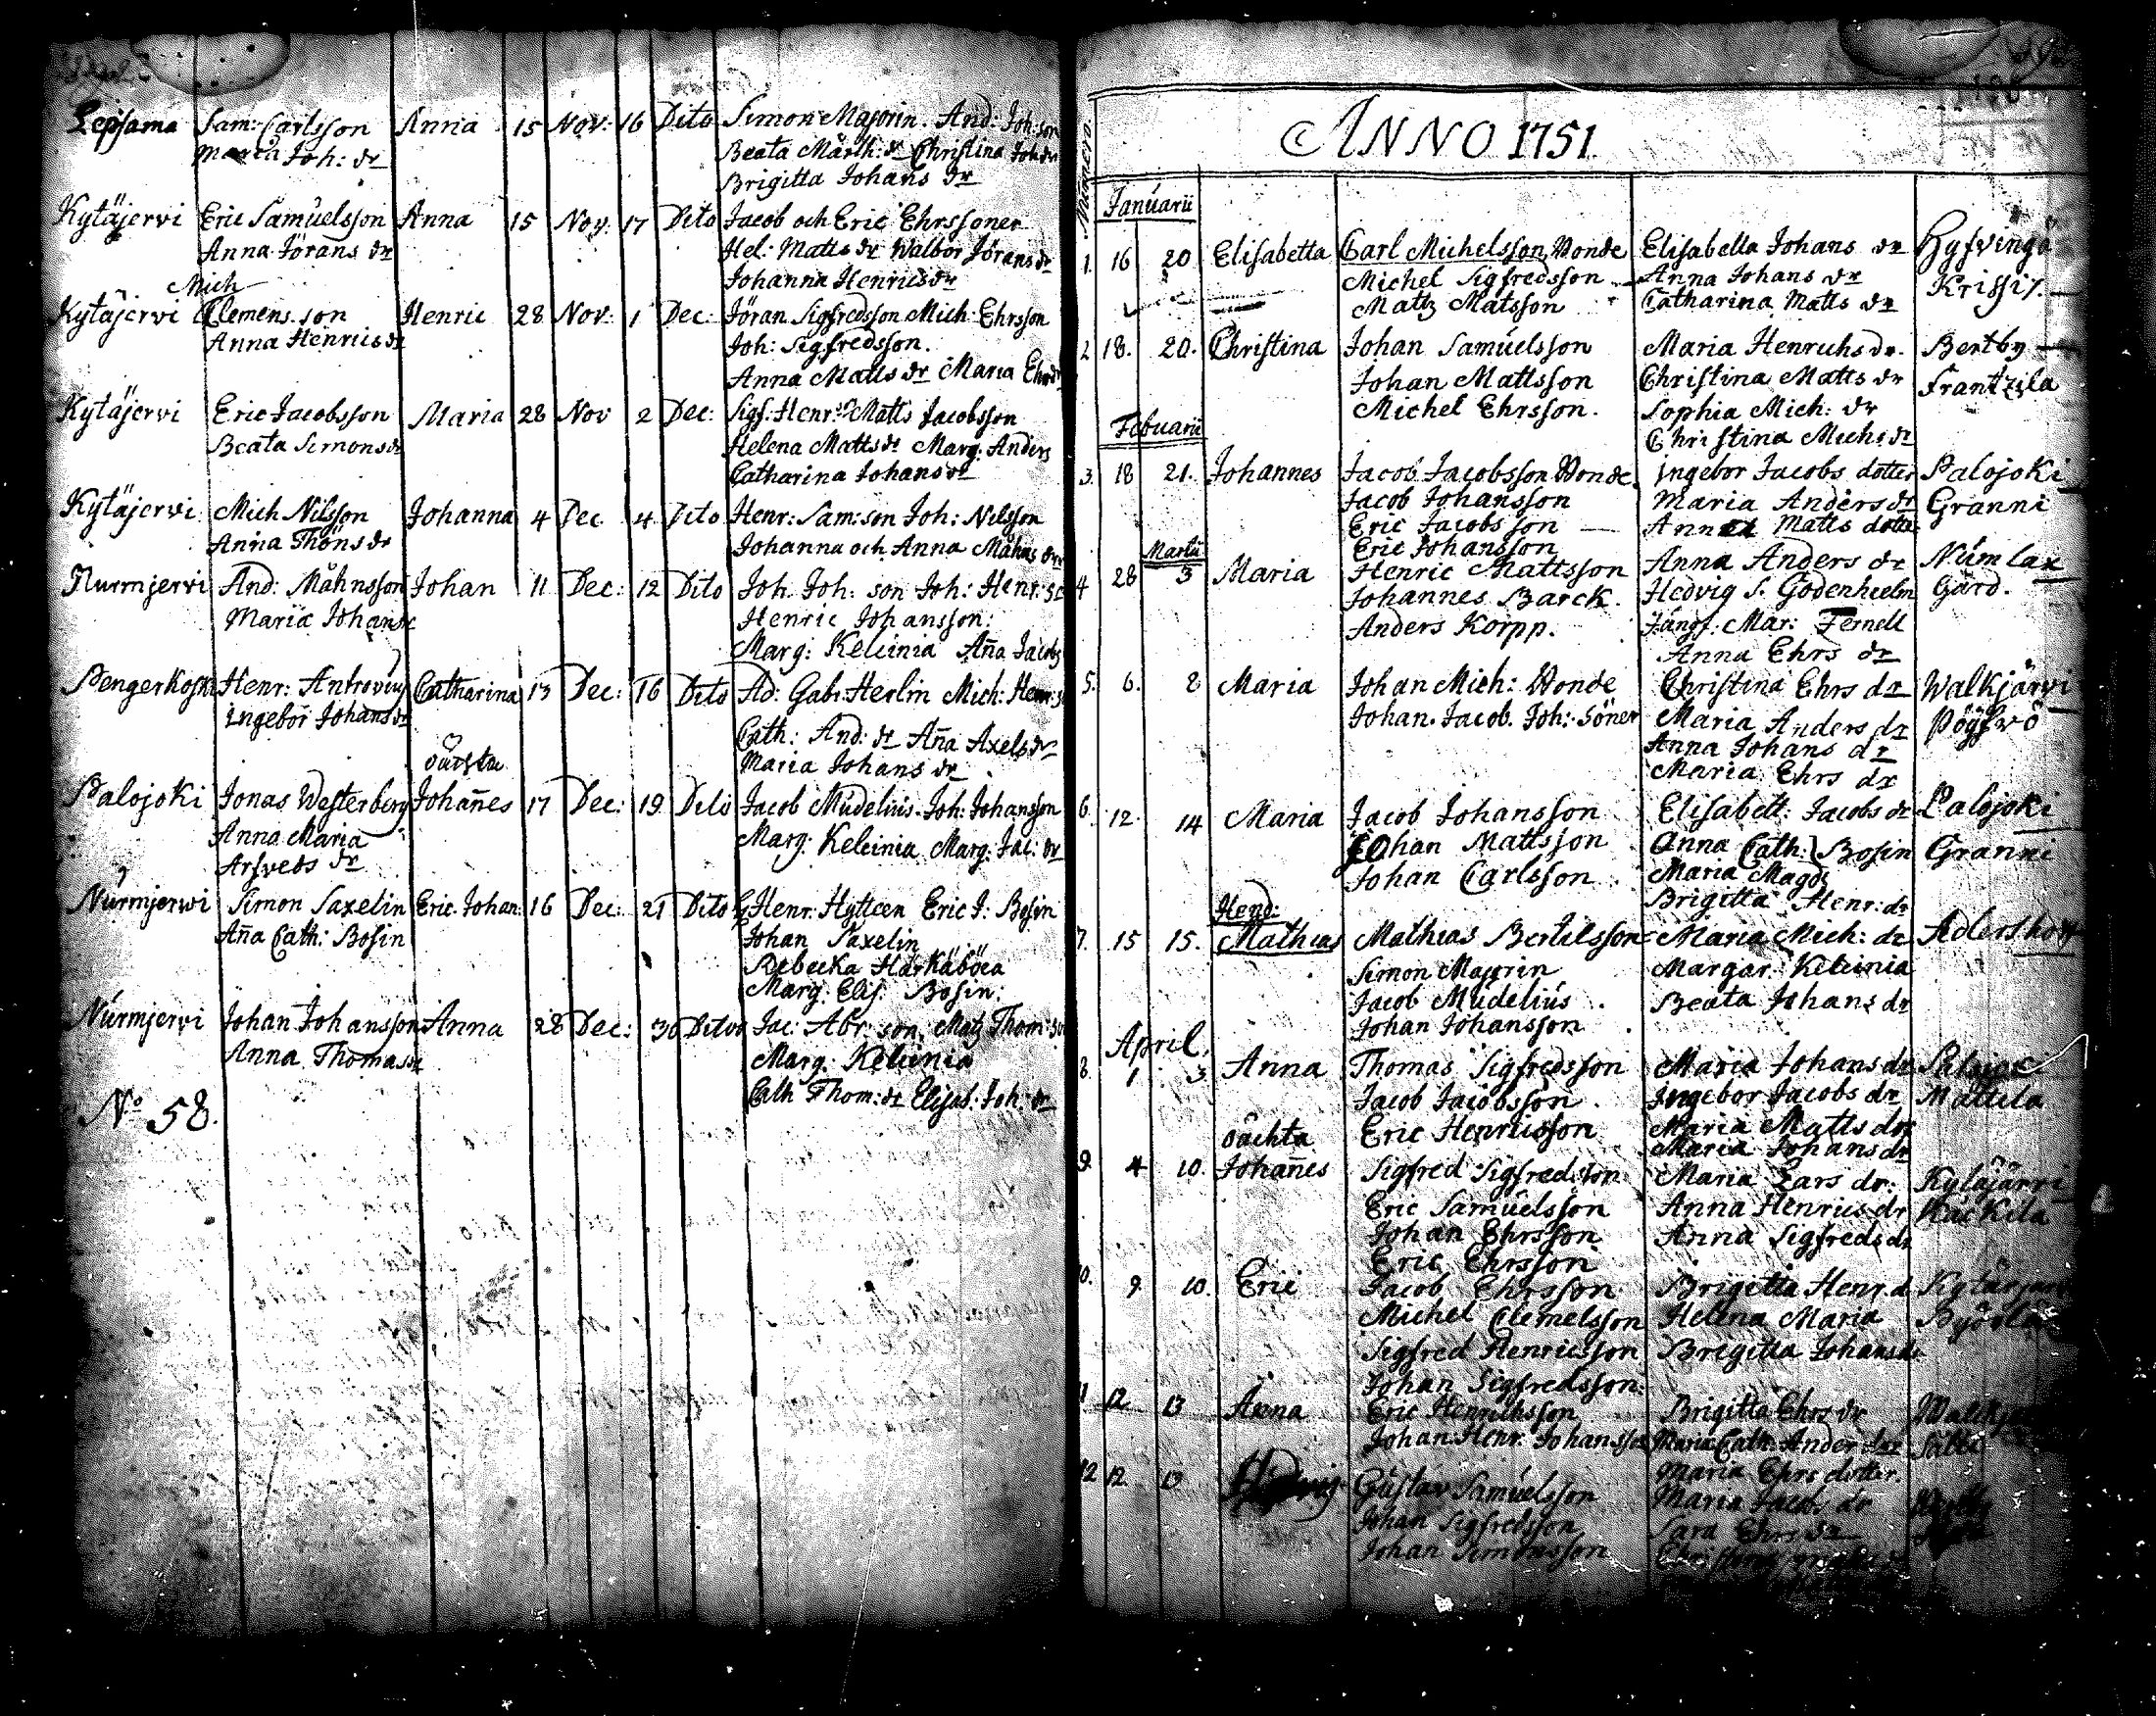 Lepsama Sam: Carlsson Anna 15 Nov: 16 Dito Simon Majorin. And: Joh: son
Maria Joh: dr Beata Märth: dr Christina Joh dr
Brigitta Johans dr
Kytäjervi Eric Samuelsson Anna 15 Nov. 17 Dito Jacob och Eric Ehrssoner
Anna Jörans dr Hel: Matts dr Walbor Jörans dr
Johanna Henrics dr
Mich
Kytäjervi Clemens son Henric 28 Nov: 1 Dec: Jöran Sigfredsson Mich: Ehrsson
Anna Henrics dr Joh: Sigfredsson.
Anna Matts dr Maria Ehrs dr
Kytäjervi Eric Jacobsson Maria 28 Nov 2 Dec: Sigf: Henr: Matts Jacobsson
Beata Simons dr Helena Matts dr Marg: Anders
Catharina Johans dr
Kytäjervi Mich Nilsson Johanna 4 Dec 4 Dito Henr: Sam: son Joh: Nilsson
Anna Thons dr Johanna och Anna Måhns dr
Nurmjervi And: Måhnsson Johan 11 Dec: 12 Dito Joh. Joh: son Joh: Henr:
Maria Johans Henric Johansson:
Marg: Keleinia Aña Jacobs
Pengerkoski Henr: Catharina 13 Dec: 16 Dito Ad: Gabr: Herlin Mich: Henr:
Ingebor Johans dr Cath: And: dr Aña Axels dr
oächta Maria Johans dr
Palojoki Jonas Westerberg Johañes 17 Dec: 19 Dito Jacob Mudelius. Joh: Johansson
Anna Maria Marg: Keleinia Marg: Jac: dr
Arfveds dr
Nurmjerwi Simon Saxelin Eric. Johan: 16 Dec: 21 Dito Henr: Hyttcen Eric J: Bosin
Aña Cath: Bosin Johan Saxelin
Rebecka Härkäböca
Marg: Elis: Bosin:
Nurmjervi Johan Johansson Anna 28 Dec: 30 Ditoo Jac: Abr: son, Matz Thom: son
Anna Thomas dr Marg: Keleinia
Cath Thom: dr Elisab: Joh: dr
No 58.
ANNO 1751.
Numero.
Januarii
1. 16 20 Elisabetta Carl Michelsson Bonde Elisabella Johans dr Hyfvinge
Michel Sigfredsson Anna Johans dr Krissi
Matz Matsson Catharina Matts dr
2 18. 20. Christina Johan Samuelsson Maria Henrichs dr. Bertby
Johan Mattsson Christina Matts dr Frantzila
Michel Ehrsson. Sophia Mich: dr
Febuarii Christina Michs dr
3. 18 21. Johannes Jacob Jacobsson Bonde. Ingebor Jacobs dotter Palojoki
Jacob Johansson Maria Anders dr Granni
Eric Jacobsson Anna Matts dotter
Eric Johansson
Martii
4 28 3 Maria Henric Mattsson Anna Anders dr Numlax
Johannes Barck. Hedvig S. Godenheelm Gård.
Anders Korpp. Jungf: Mar: Fernell
Anna Ehrs dr
5. 6. 8 Maria Johan Mich: Bonde Christina Ehrs dr Walkjärvi
Johan. Jacob. Joh: Söner Maria Anders dr
Anna Johans dr
Maria Ehrs dr
6 12. 14 Maria Jacob Johansson Elisabett: Jacobs dr Palojoki
Johan Mattsson Anna Cath: } Bosin Granni
Johan Carlsson. Maria Magd:
Brigitta Henr: dr
Hend:
7. 15 15. Mathias Mathias Bertelsson Maria Mich: dr
Simon Majorin Margar: Keleinia
Jacob Mudelius. Beata Johans dr
Johan Johansson
April.
8. 1 3 Anna Thomas Sigfredsson Maria Johans dr
Jacob Jacobsson. Ingebor Jacobs dr Mattila
Eric Henricsson Maria Matts dr
oächta Maria Johans dr
9. 4 10. Johañes Sigfred Sigfredsson Maria Lars dr. Kytäjärvi
Eric Samuelsson Anna Henrics dr
Johan Ehrsson Anna Sigfreds dr
Eric Ehrsson
10. 9. 10. Eric Jacob Ehrsson Brigitta Henr. d
Michel Clemelsson Helena Maria
Sigfred Henricsson Brigitta Johans dr
Johan Sigfredsson.
11 12 13 Anna Eric Henrichsson Brigitta Ehrs dr
Johan Henr. Johansson Maria Cath: Ander dr
Maria Ehrs dotter.
12 12. 13 Gustav Samuelsson Maria Jacobs dr
Johan Sigfredsson Sara Ehrs dr
Johan Simonsson